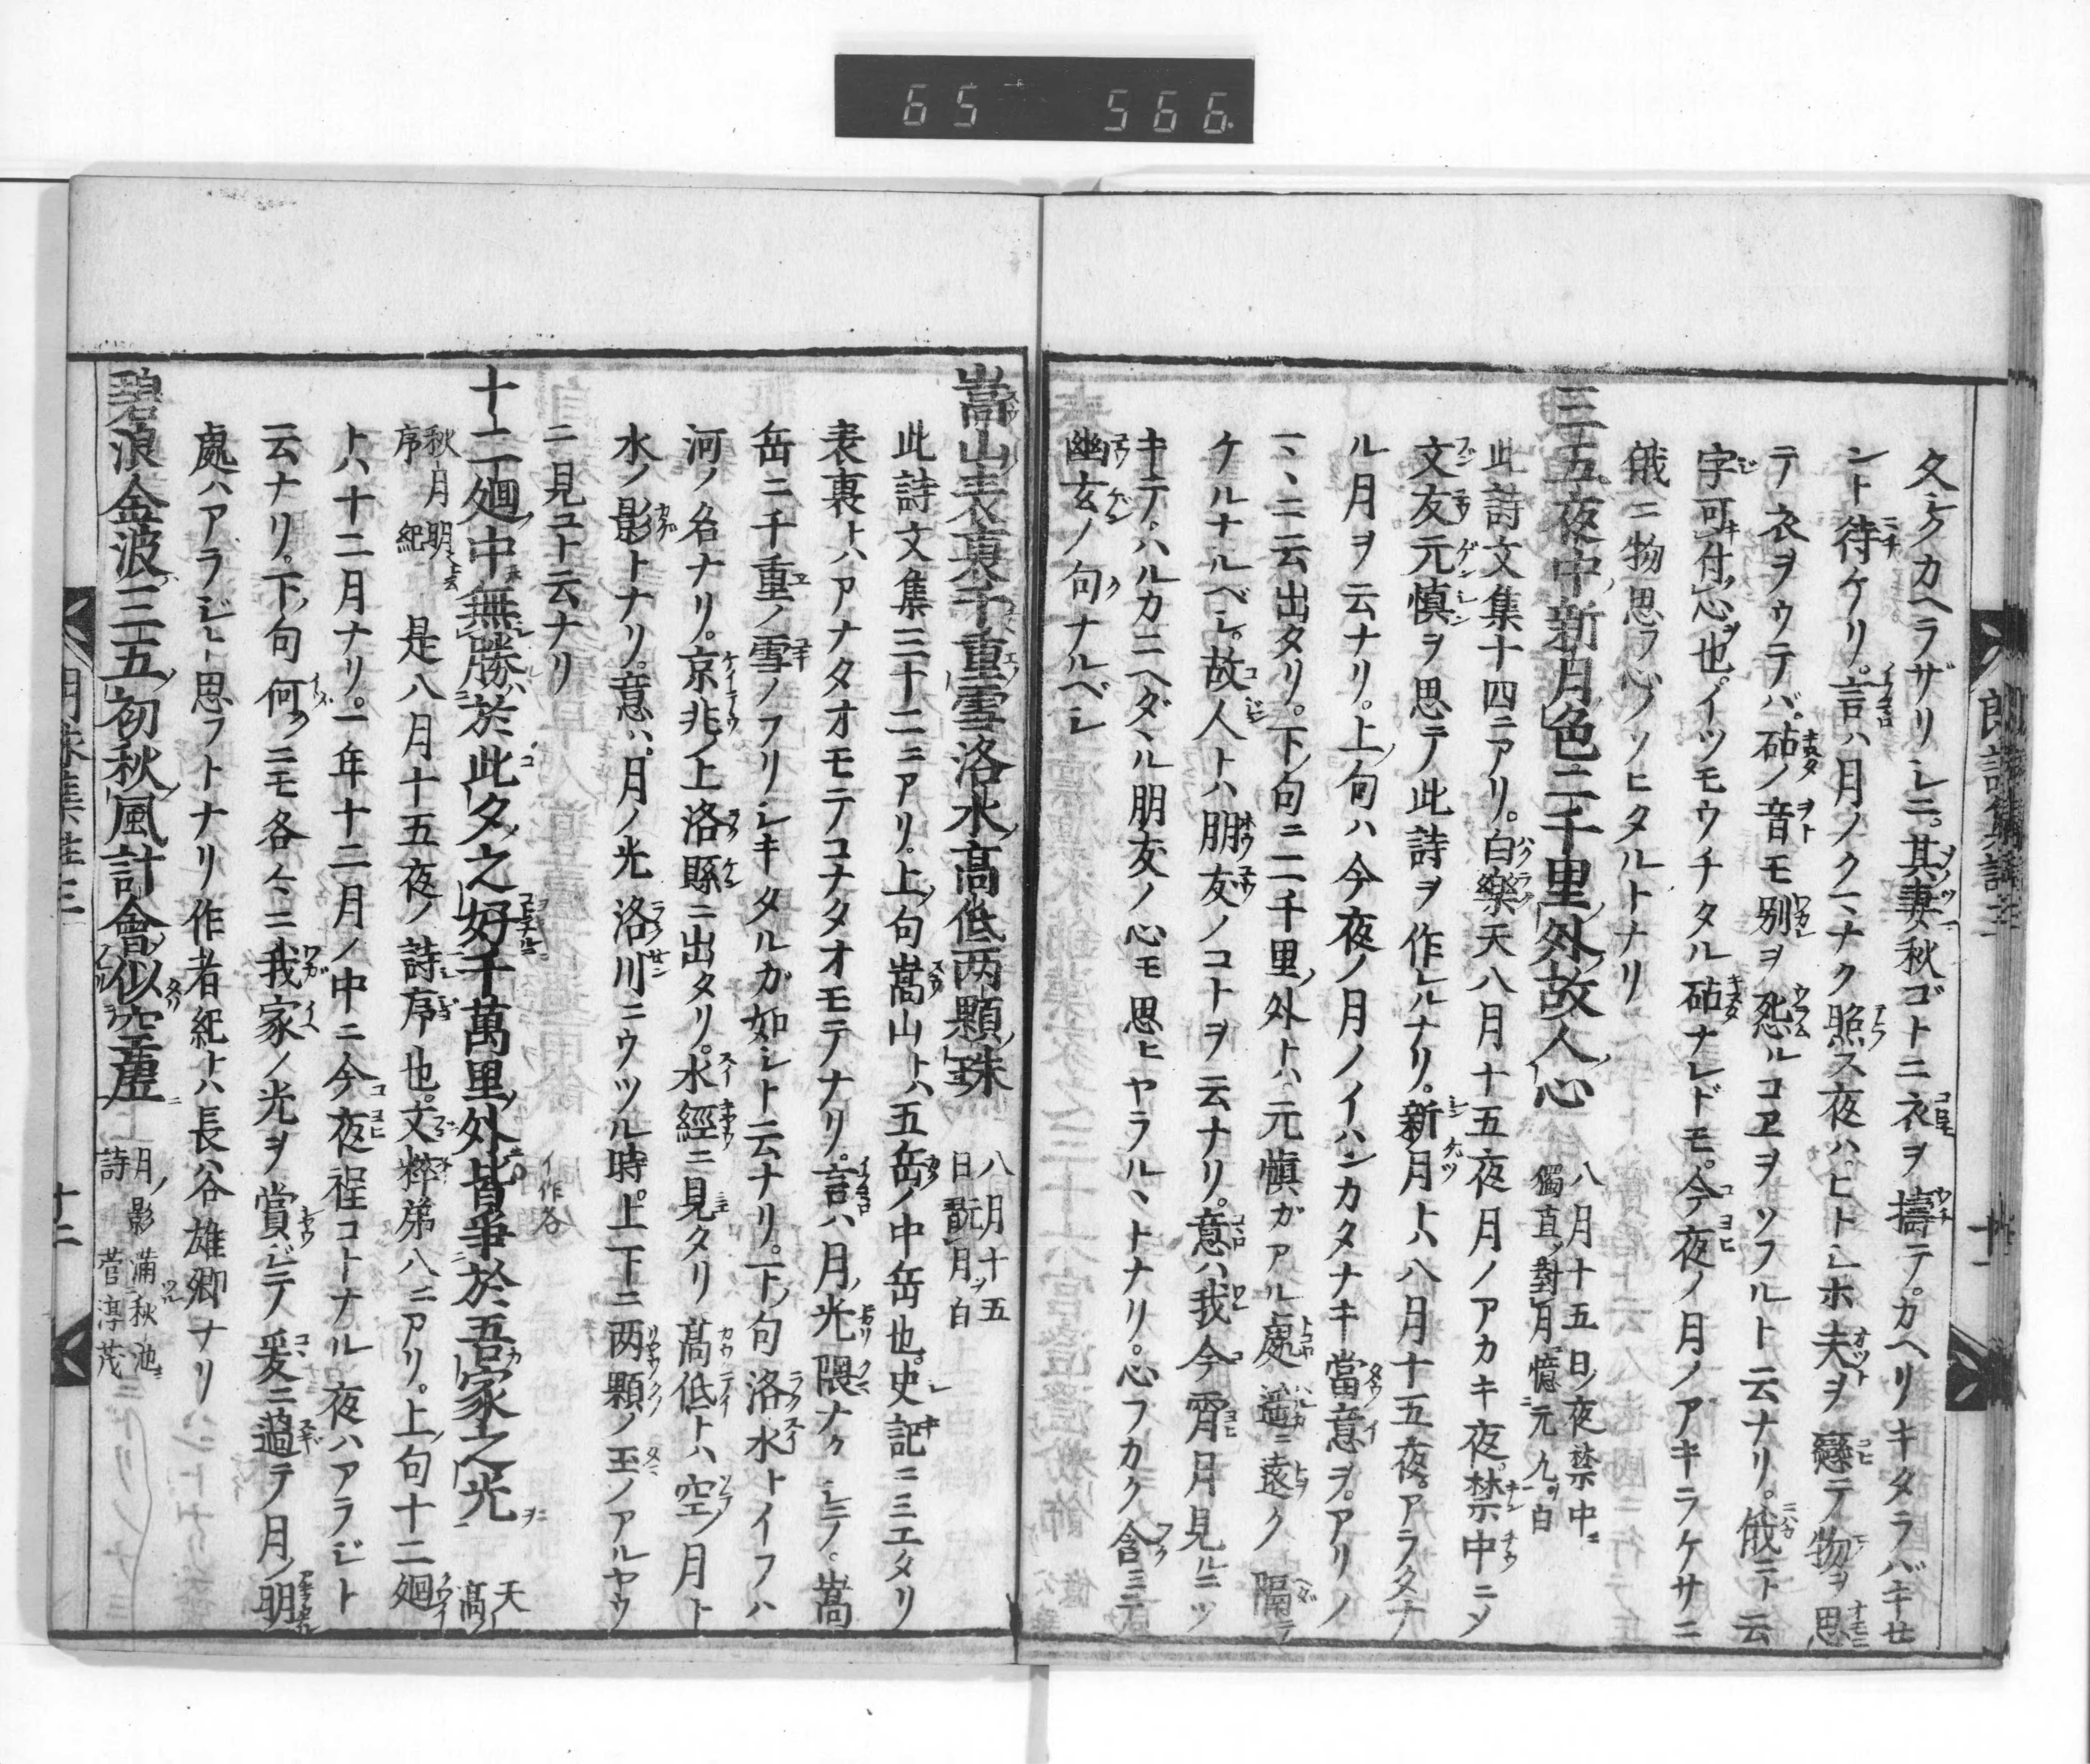 65 566
久シクカヘラザリシニ。其妻秋ゴトニ衣ヲ擣テ。カヘリキタラバキせ
ント待ケリ。言ハ月ノクマナク照ス夜ハ。ヒトシホ夫ヲ戀テ物ヲ思
テ衣ヲウテバ。砧ノ音モ別ヲ怨ルコヱヲソフルト云ナリ。俄ニト云
字可付心也。イツモウチタル砧ナレドモ。今夜ノ月ノアキラケサニ
俄ニ物思フ心ノソヒタルトナリ
三五夜中新月色二千里外故人心 八月十五日夜禁中 獨直對月憶元九 白
此詩文集十四ニアリ。白樂天八月十五夜月ノアカキ夜。禁中ニメ
文友元慎ヲ思テ此詩ヲ作レルナリ。新月トハ八月十五夜。アラタナ
ル月ヲ云ナリ。上句ハ今夜ノ月ノイハンカタナキ當意ヲ。アリノ
マヽニ云出タリ。下句ニ二千里外トハ元慎ガアル處遥ニ遠ク隔テ
ケルナルベシ。故人トハ朋友ノコトヲ云ナリ。意ハ我今宵月見ルニツ
キテ。ハルカニヘダヽル朋友ノ心モ思ヒヤラルヽトナリ。心フカク含ミテ
幽玄ノ句ナルベシ
嵩山表裏千重雪洛水高低两顆珠 八月十五日翫月 白
此詩文集三十二ニアリ。上句嵩山トハ五岳ノ中岳也。史記ニミエタリ
表裏トハアナタオモテコナタオモテナリ。言ハ月光隈ナクシテ。嵩
岳ニ千重ノ雪ノフリシキタルガ如シト云ナリ。下句洛水トイフハ
河ノ名ナリ。京兆上洛縣ニ出タリ。水經ニ見タリ高低トハ空ノ月ト
水ノ影トナリ。意ハ。月ノ光洛川ニウツル時。上下ニ两顆ノ玉ノアルヤウ
ニ見コト云ナリ
十二廻中無勝於此夕之好千萬里外皆爭於吾家之光 天高
秋月明序 紀 是八月十五夜ノ詩序也。文粹第八ニアリ。上句十二廻
トハ十二月ナリ。一年十二月ノ中ニ今夜程コトナル夜ハアラジト
云ナリ。下句何クニモ各々ニ我家ノ光ヲ賞ジテ爰ニ過テ月ノ明
處ハアラジト思フトナリ作者紀トハ長谷雄卿ナリ
碧浪金波三五初秋風計會似空虚 月影滿秋池詩 菅淳茂